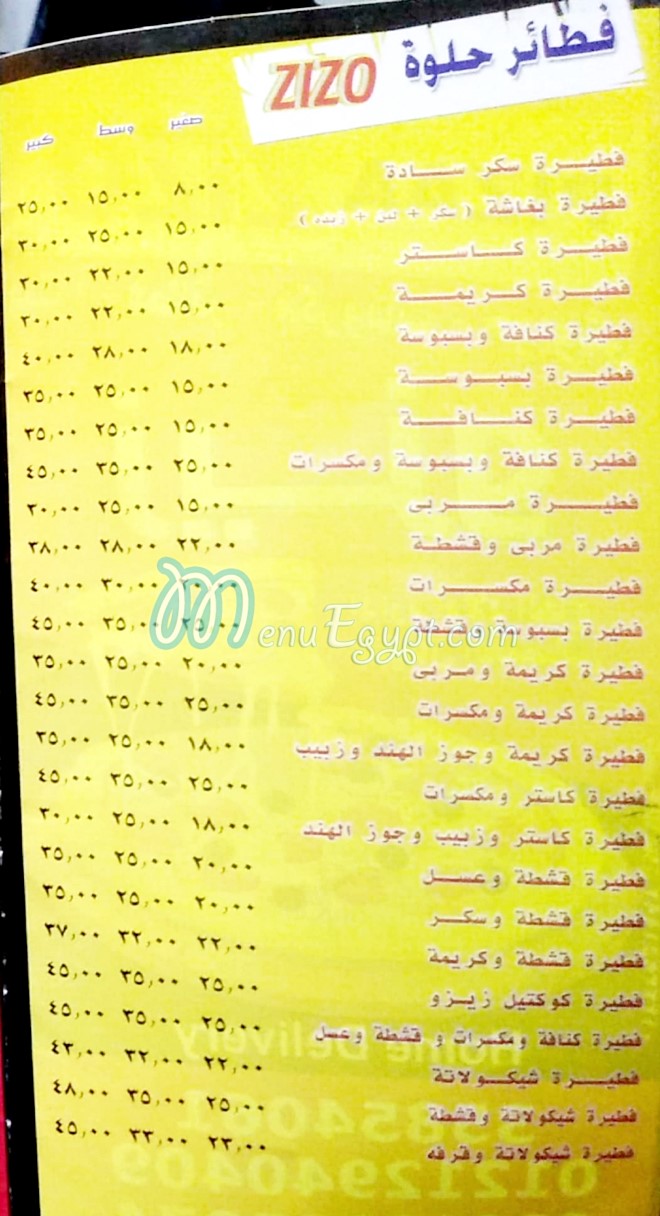 فطائر حلوة ZIZO
صغير وسط كبير
فطيرة سكر سادة ٨,٠٠ ١٥,٠٠ ٢٥,٠٠
فطيرة بغاشة ( سكر + لبن + زبده ) ١٥,٠٠ ٢٥,٠٠ ٣٠,٠٠
فطيرة كاستر ١٥,٠٠ ٢٢,٠٠ ٣٠,٠٠
فطيرة كريمة ١٥,٠٠ ٢٢,٠٠ ٣٠,٠٠
فطيرة كنافة وبسبوسة ١٨,٠٠ ٢٨,٠٠ ٤٠,٠٠
فطيرة بسبوسة ١٥,٠٠ ٢٥,٠٠ ٣٥,٠٠
فطيرة كنافة ١٥,٠٠ ٢٥,٠٠ ٣٥,٠٠
فطيرة كنافة وبسبوسة ومكسرات ٢٥,٠٠ ٣٥,٠٠ ٤٥,٠٠
فطيرة مربى ١٥,٠٠ ٢٥,٠٠ ٣٠,٠٠
فطيرة مربى وقشطة ٢٢,٠٠ ٢٨,٠٠ ٣٨,٠٠
فطيرة مكسرات ٢٠,٠٠ ٣٠,٠٠ ٤٠,٠٠
فطيرة بسبوسة وقشطة ٢٥,٠٠ ٣٥,٠٠ ٤٥,٠٠
MenuEgypt.com
فطيرة كريمة ومربى ٢٠,٠٠ ٢٥,٠٠ ٣٥,٠٠
فطيرة كريمة ومكسرات ٢٥,٠٠ ٣٥,٠٠ ٤٥,٠٠
فطيرة كريمة وجوز الهند وزبيب ١٨,٠٠ ٢٥,٠٠ ٣٥,٠٠
فطيرة كاستر ومكسرات ٢٥,٠٠ ٣٥,٠٠ ٤٥,٠٠
فطيرة كاستر وزبيب وجوز الهند ١٨,٠٠ ٢٥,٠٠ ٣٠,٠٠
فطيرة قشطة وعسل ٢٠,٠٠ ٢٥,٠٠ ٣٥,٠٠
فطيرة قشطة وسكر ٢٠,٠٠ ٢٥,٠٠ ٣٥,٠٠
فطيرة قشطة وكريمة ٢٢,٠٠ ٣٢,٠٠ ٣٧,٠٠
فطيرة كوكتيل زيزو ٢٥,٠٠ ٣٥,٠٠ ٤٥,٠٠
فطيرة كنافة ومكسرات و قشطة وعسل ٢٥,٠٠ ٣٥,٠٠ ٤٥,٠٠
فطيرة شيكولاتة ٢٢,٠٠ ٣٢,٠٠ ٤٣,٠٠
فطيرة شيكولاتة وقشطة ٢٥,٠٠ ٣٥,٠٠ ٤٨,٠٠
فطيرة شيكولاتة وقرفه ٢٣,٠٠ ٣٣,٠٠ ٤٥,٠٠
Home Delivery
01212940409